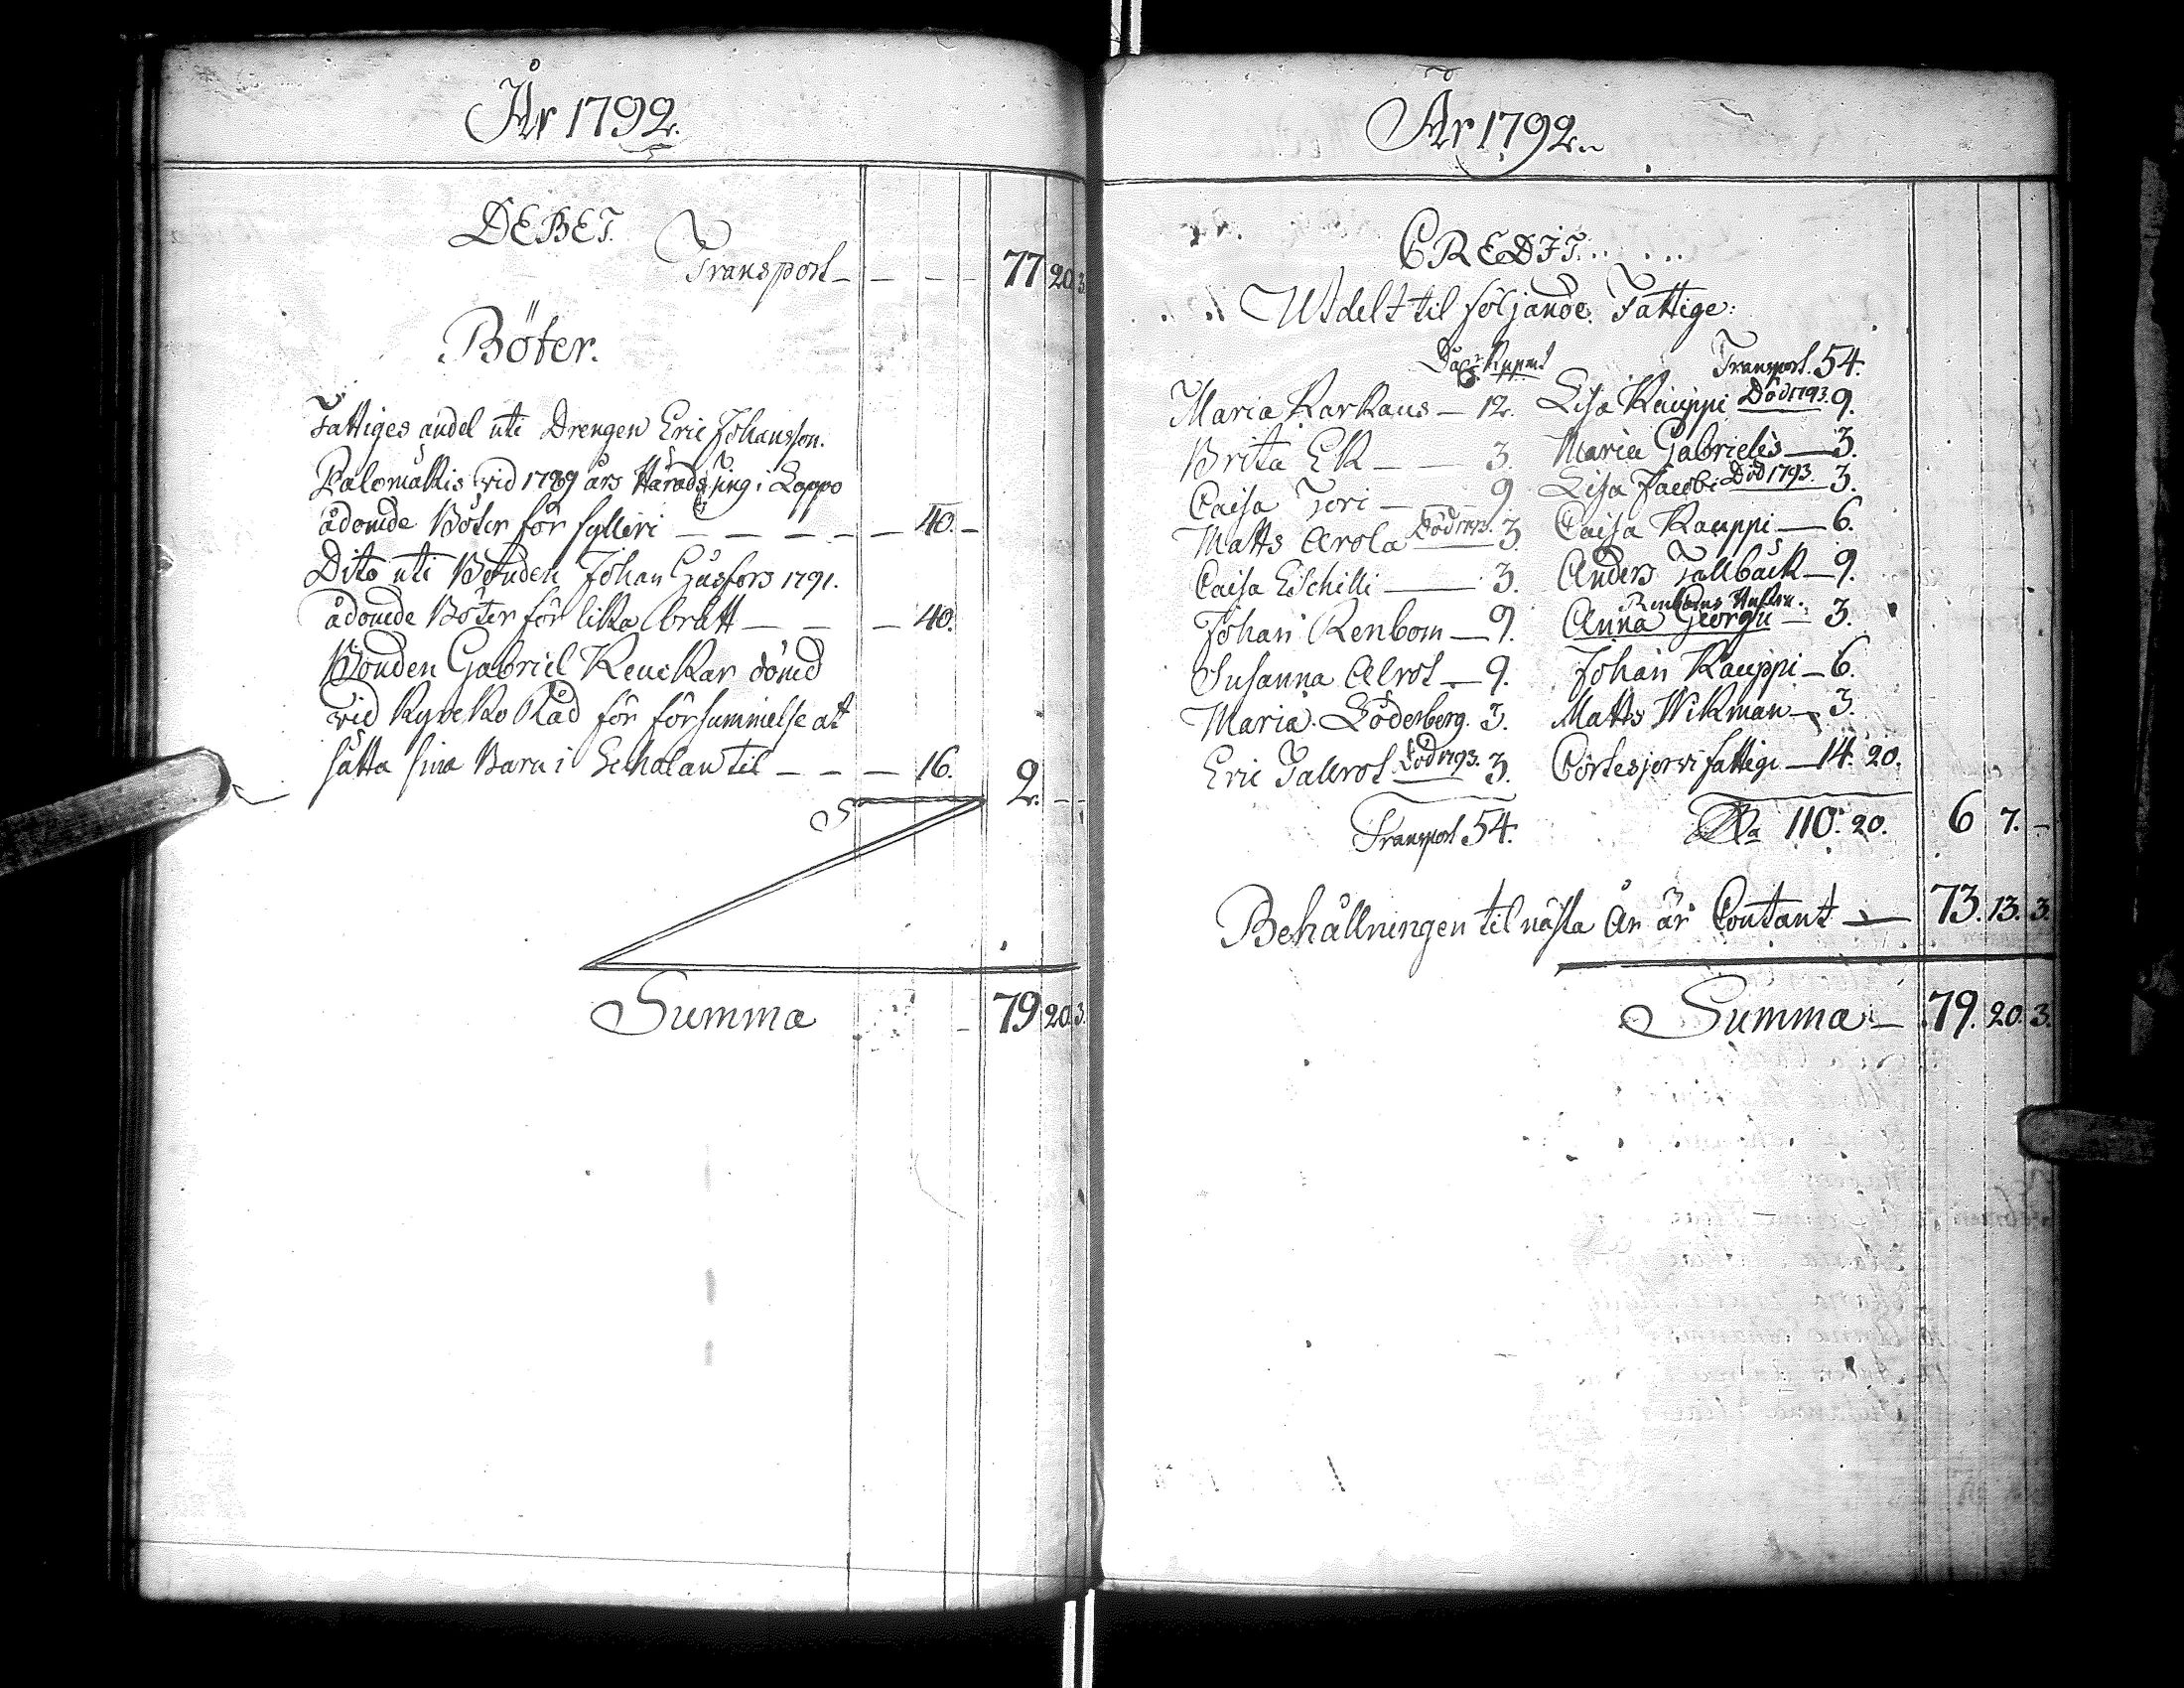 År 1792.
DEBET.
Transport — — — — 77 20. 3.
Böter.
Fattiges andel uti Drengen Eric Johansson
Palomäkis vid 1789 års Härads Ting i Lappo
ådömde Böter för fylleri — — — — — 40. —
Dito uti Bonden Johan Gusfors 1791.
ådömde Böter för lika brått — — — 40.
Bonden Gabriel Keuckar dömd
vid Kyrcko Råd för försummelse at
sätta sina Barn i Scholan til — — — 16. 2. — —
Summa — 79 20. 3.
År 1792.
CREDIT.
Utdelt til följande Fattige:
Maria Karkaus — 12.
Brita Ek — — 3.
Caisa Tori — — 9
Matts Arola Död 1793. 3
Caisa Eschilli — 3.
Johan Renbom — 9.
Susanna Alrot — 9.
Maria Söderberg. 3.
Eric Tallrot Död 1793. 3.
Transport 54.
Transport. 54.
Lisa Kauppi Död 1793. 9.
Maria Gabrielis — 3.
Lisa Jacobi Död 1793. 3.
Caisa Kauppi — 6.
Anders Tallbäck — 9.
Renboms Hustru.
Anna Georgii — 3.
Johan Kauppi — 6.
Matts Wikman — 3.
Cortesjervi fattige — 14. 20.
110. 20. 6 7. —
Behållningen til nästa År är Contant — 73. 13. 3.
Summa — 79. 20. 3.